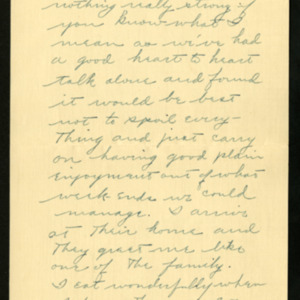 nothing really strong if
you know what I
mean as we've had
a good heart to heart
talk alone and found
it would be best
not to spoil every-
thing and just carry
on having good plain
enjoyment out of what
week-ends we could
manage. I arrive
at their home and
they greet me like
one of the family.
I eat wonderfully when